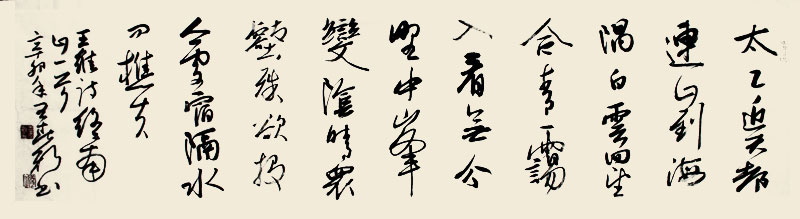 太乙近天都
連山到海
隅白雲回望
合青靄
入看無分
野中峯
變陰晴衆
壑殊欲投
人處宿隔水
问樵夫
王維詩終南
山一首
辛卯年王書